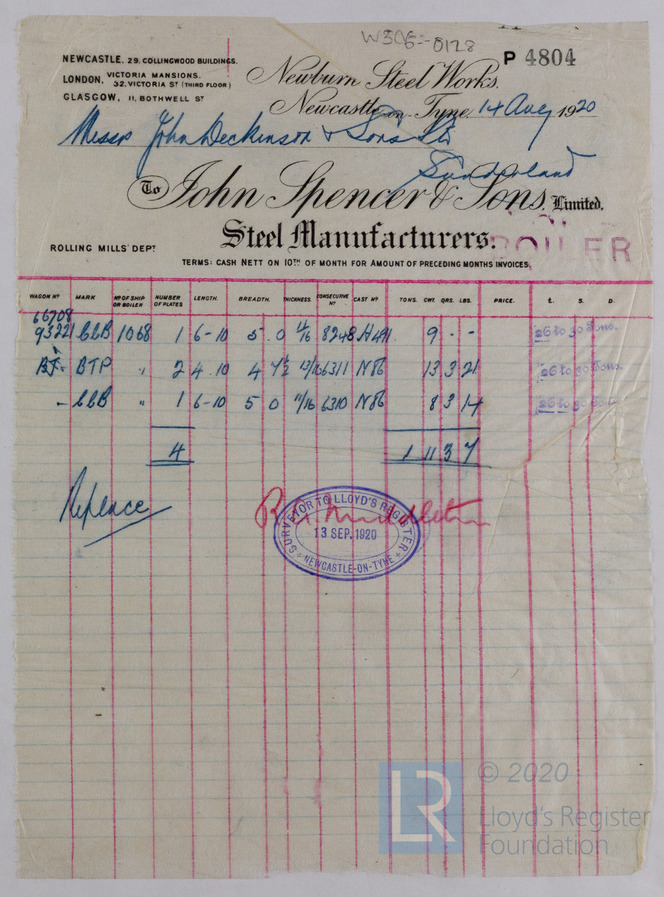 W306-0128
P 4804
NEWCASTLE, 29, COLLINGWOOD BUILDINGS.
LONDON, VICTORIA MANSIONS. 32, VICTORIA ST (THIRD FLOOR)
GLASGOW, 11, BOTHWELL ST
Newburn Steel Works.
Newcastle on Tyne, 14 Aug 1920
Messrs John Dickinson & Sons Ltd
Sunderland
To John Spencer & Sons, Limited.
Steel Manufacturers.
BOILER
ROLLING MILLS' DEPT
TERMS: CASH NETT ON 10TH OF MONTH FOR AMOUNT OF PRECEDING MONTHS INVOICES
WAGON No MARK No OF SHIP OR BOILER NUMBER OF PLATES LENGTH. BREADTH. THICKNESS. CONSECUTIVE No CAST No TONS. CWT. QRS. LBS. PRICE. £. S. D.
66708
93221 CCB 1068 1 6-10 5 . 0 /16 8248 H491 9 - - 26 to 30 Tons.
BTP " 2 4 . 10 4 7½ 13/16 6311 N86 13 3 21 26 to 30 Tons.
- CCB " 1 6-10 5 0 11/16 6310 N86 8 3 14 26 to 30
4 1 11 3 7
Replace
Middleton
SURVEYOR TO LLOYD'S REGISTER
13 SEP. 1920
NEWCASTLE-ON-TYNE
LR © 2020
Lloyd's Register
Foundation